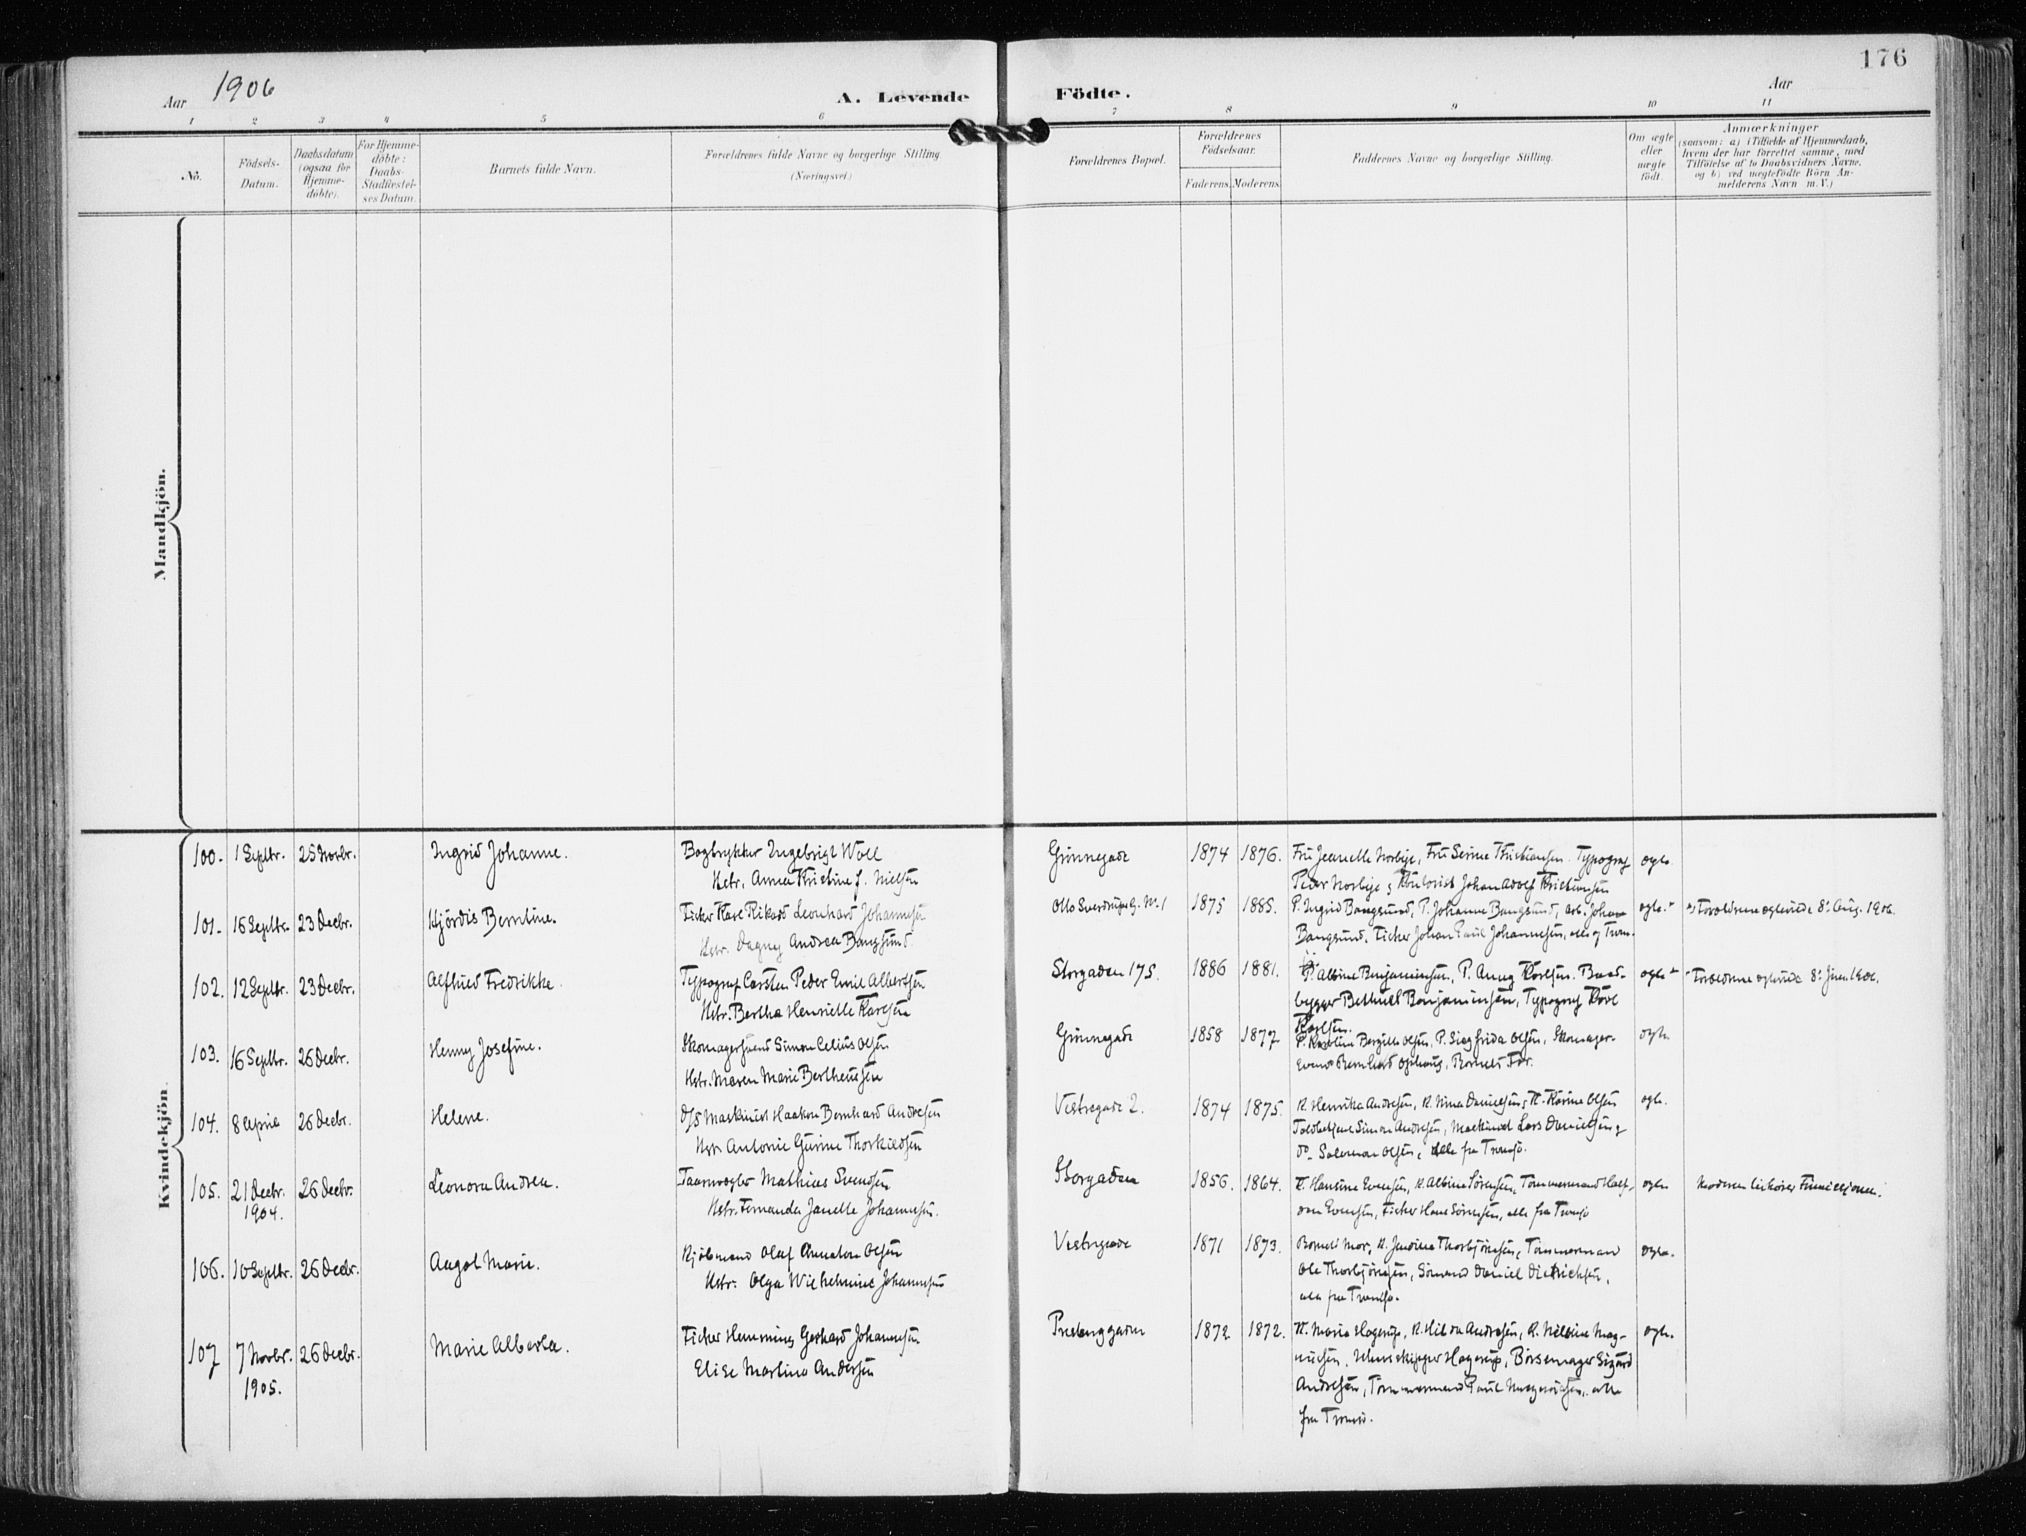 176
Aar 1906
A. Levende Födte.
Aar
1 2 3 4 5 6 7 8 9 10 11
No.
Födsels-
Datum.
Daabsdatum
(ogsaa for
Hjemme-
döbte).
For Hjemme-
döbte:
Daabs-
Stadfæstel-
ses Datum.
Barnets fulde Navn.
Forældrenes fulde Navne og borgerlige Stilling
(Næringsvei)
Forældrenes Bopæl.
Forældrenes
Födselsaar.
Faderens. Moderens.
Faddernes Navne og borgerlige Stilling.
Om ægte
eller
uægte
födt.
Anmærkninger
(saasom: a) i Tilfælde af Hjemmedaab,
hvem der har forrettet samme, med
Tilföielse af to Daabsvidners Navne.
og b) ved uægtefödte Börn An-
melderens Navn m. V.)
Mandkjön.
Kvindekjön.
100. 1 Septbr. 25 Novbr. Ingrid Johanne. Bogtrykker Ingebrigt Woll Grønnegade 1874 1876. Fru Jeanette Norbye, Fru Serine Kristiansen. Typograf ægte.
Hstr. Anna Kristine f. Nielsen Peder Norbye, Johan Adolf Kristiansen
101. 16 Septbr. 23 Decbr. Hjördis Berntine. Fisker Karl Rikard Leonhard Johannesen Otto Sverdrups G. 1875 1885. P. Ingrid Bangsund, P. Johanne Bangsund, Arb. Johan ægte. Forældrene ægteviede 8. Aug. 1906.
Hstr. Dagny Andrea Bangsund Bangsund, Fisker Johan Paul Johannesen, alle af Troms.
102. 12 Septbr. 23 Decbr. Alfhild Fredrikke. Typograf Carsten Peder Emil Albertsen Storgaden 175. 1886 1881. P. Albine Benjaminsen, P. Anny Karlsen. Baad- ægte Forældrene ægteviede 8. 1906.
Hstr. Bertha Henriette Karlsen bygger Bethuel Benjaminsen, Typograf
Karlsen.
103. 16 Septbr. 26 Decbr. Henny Josefine. Skomagersvend Simon Celius Olsen Grønnegade 1858 1877 P. Bergitte Olsen, P. Sigfrida Olsen, Skomager- ægte
Hstr. Maren Marie Bertheussen svend Bernhard Barnets Far.
104. 8 April 26 Decbr. Helene. D/S Maskinist Haakon Bernhard Andresen Vestregade 2. 1874 1875. K. Henrike Andresen, K. Nina Danielsen, K. Karine Olsen ægte.
Hstr. Antonie Gurine Thorkildsen Toldbetjent Simon Andresen, Maskinist Lars Danielsen,
Do. Salomon Olsen, alle fra Tromsø.
105. 21 Decbr. 26 Decbr. Leonora Andrea. Taarnvægter Mathias Svendsen Storgaden 1856. 1864. K. Hansine Evensen, K. Albine Sørensen, Tømmermand Half- ægte Moderen tilhører Frimissionen.
1904. Hstr. Fernanda Janette Johannesen. dan Evensen, Fisker Hans Sørensen, alle fra Tromsø
106. 10 Septbr. 26 Decbr. Aagot Marie. Kjøbmand Olaf Anneton Olsen Vestregade 1871 1873. Barnets Mor, K. Jendine Thorbjørnsen, Tømmermand ægte.
Hstr. Olga Wilhelmine Johannesen Ole Thorbjørnsen, Sømand Daniel Dietrichsen,
alle fra Tromsø.
107 7 Novbr. 26 Decbr. Marie Alberta. Fisker Hemming Gerhard Johannesen 1872 1872. K. Maria Hagerup, K. Hilda Andresen, K. Nilsine Mag- ægte.
1905. Elise Martine Andersen nussen, Hagerup, Børsemager Sigurd
Andresen, Tømmermand Paul Magnussen, alle
fra Tromsø.